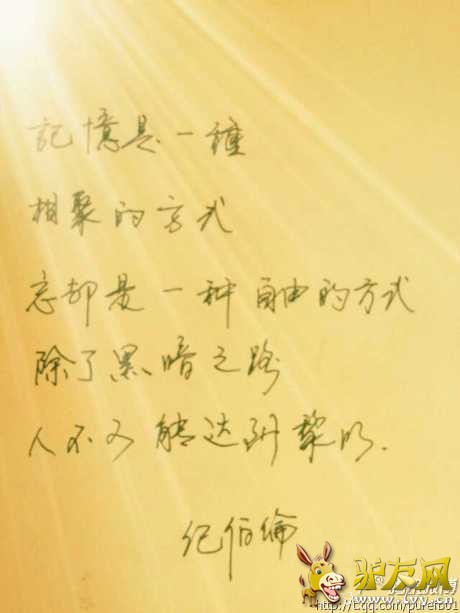 記憶是一種
相聚的方式
忘却是一种自由的方式
除了黑暗之路
人不可能达到黎明.
纪伯倫
驴友网